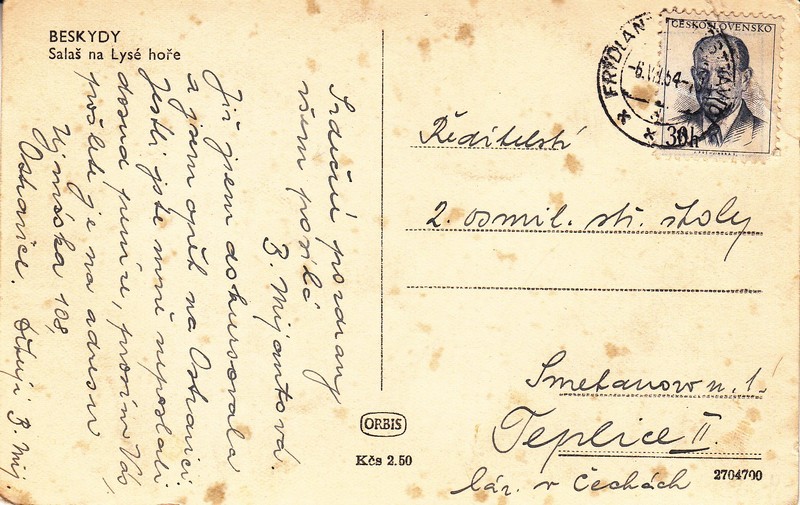 BESKYDY
Salaš na Lysé hoře
Srdečné pozdravy
všem posílá
B. Mijantová.
Již jsem dokursovala
a jsem opět na Ostravici.
Jestli jste mně neposlali
dosud peníze, prosím Vás,
pošlete je na adresu
108,
Ostravice. Děkuji B. Mij.
ČESKOSLOVENSKO
30h
FRÝDLANT
Ředitelství
2. osmil. stř. školy
Smetanovo n. 1.
Teplice II.
láz. v Čechách
ORBIS
Kčs 2.50
2704700